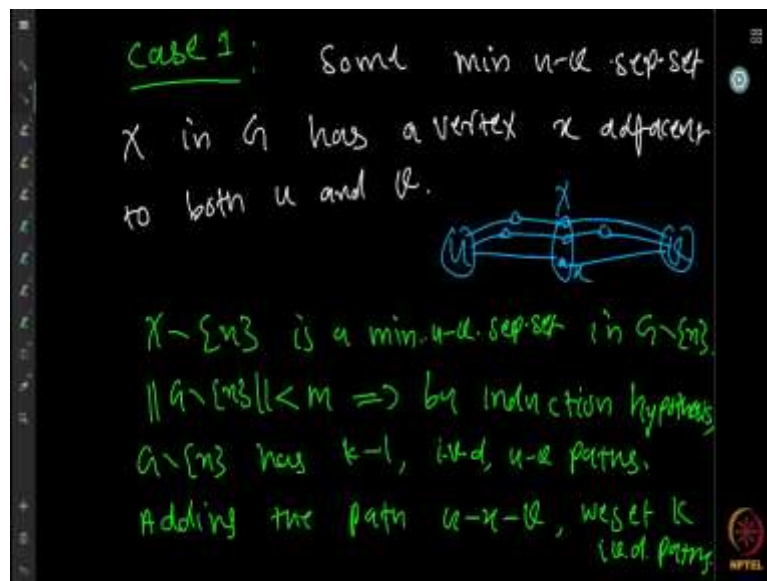 Case 1: Some min u-v sep-set
X in G has a vertex x adjacent
to both u and v.
X
u v
x
X∖{x} is a min. u-v. sep-set in G∖{x}.
||G∖{x}|| < m => by induction hypothesis,
G∖{x} has k-1, i.v.d, u-v paths.
Adding the path u-x-v, we get k
i.v.d. paths.
NPTEL